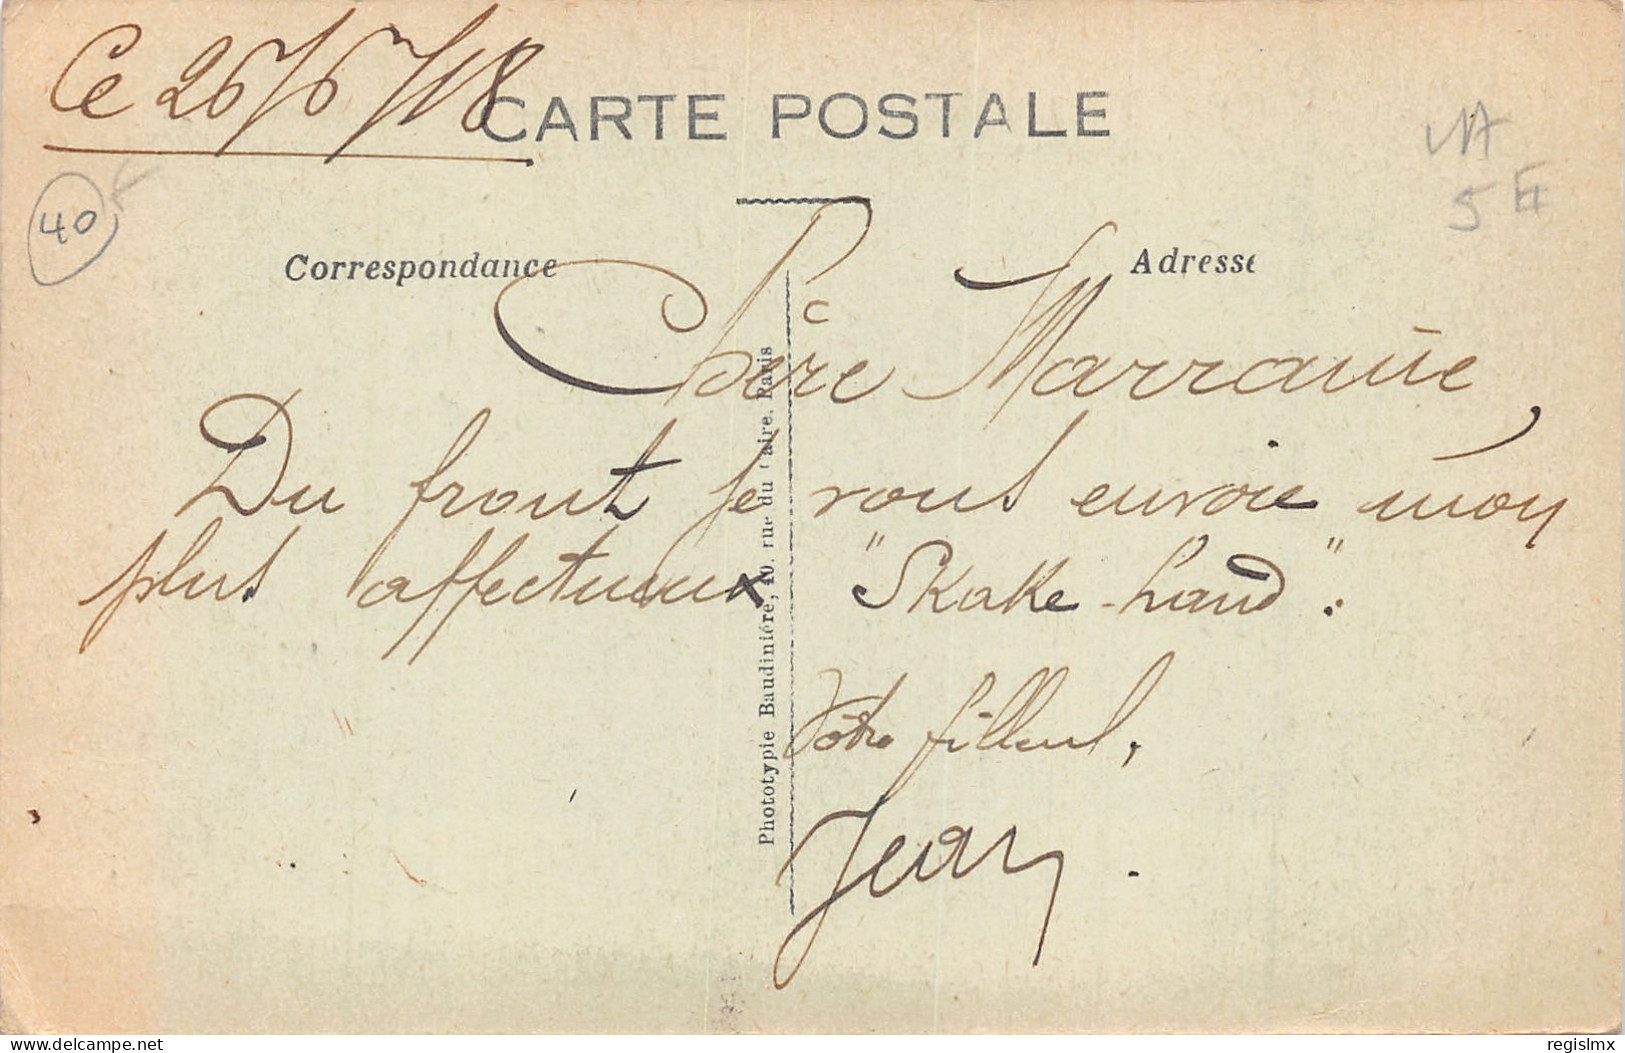 Ce 26/6/18
CARTE POSTALE
40
5 E
Correspondance
Adresse
Chère Marraine,
Du front je vous envoie mon
plus affectueux "Skake-hand".
Votre filleul,
Jean.
Phototypie Baudinière, 40, rue du Caire, Paris
www.delcampe.net
regislmx